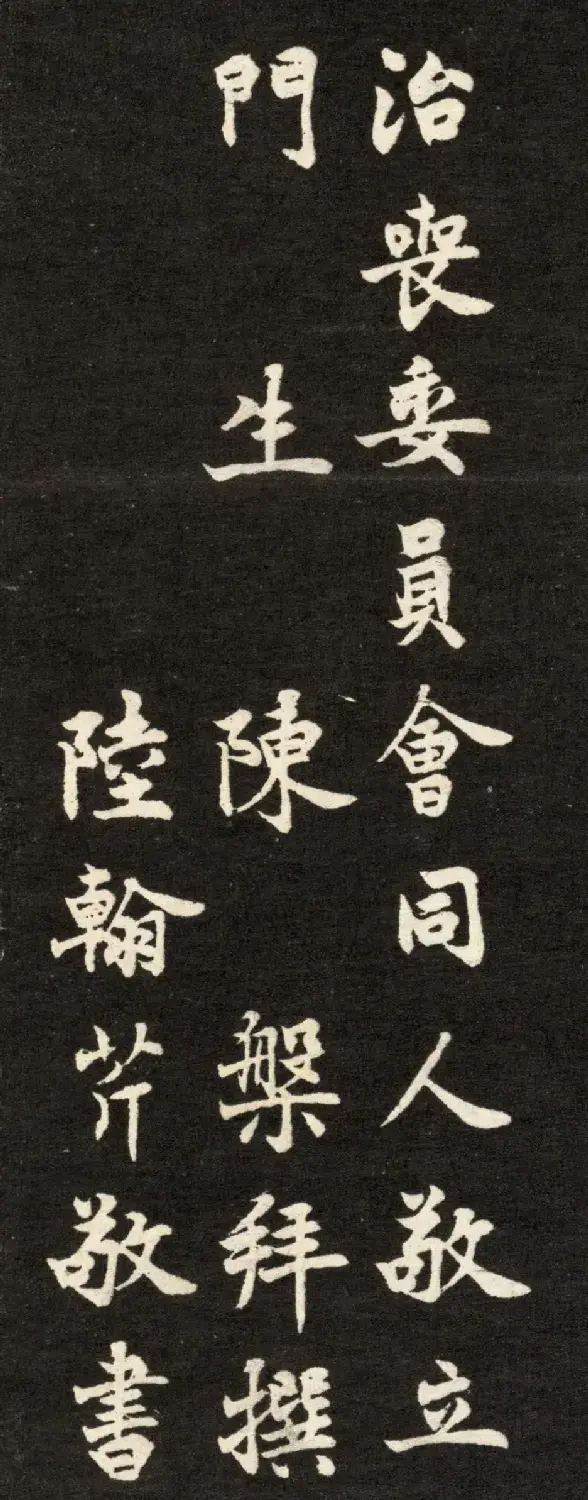 治喪委員會同人敬立
門生陳槃拜撰
陸翰芹敬書